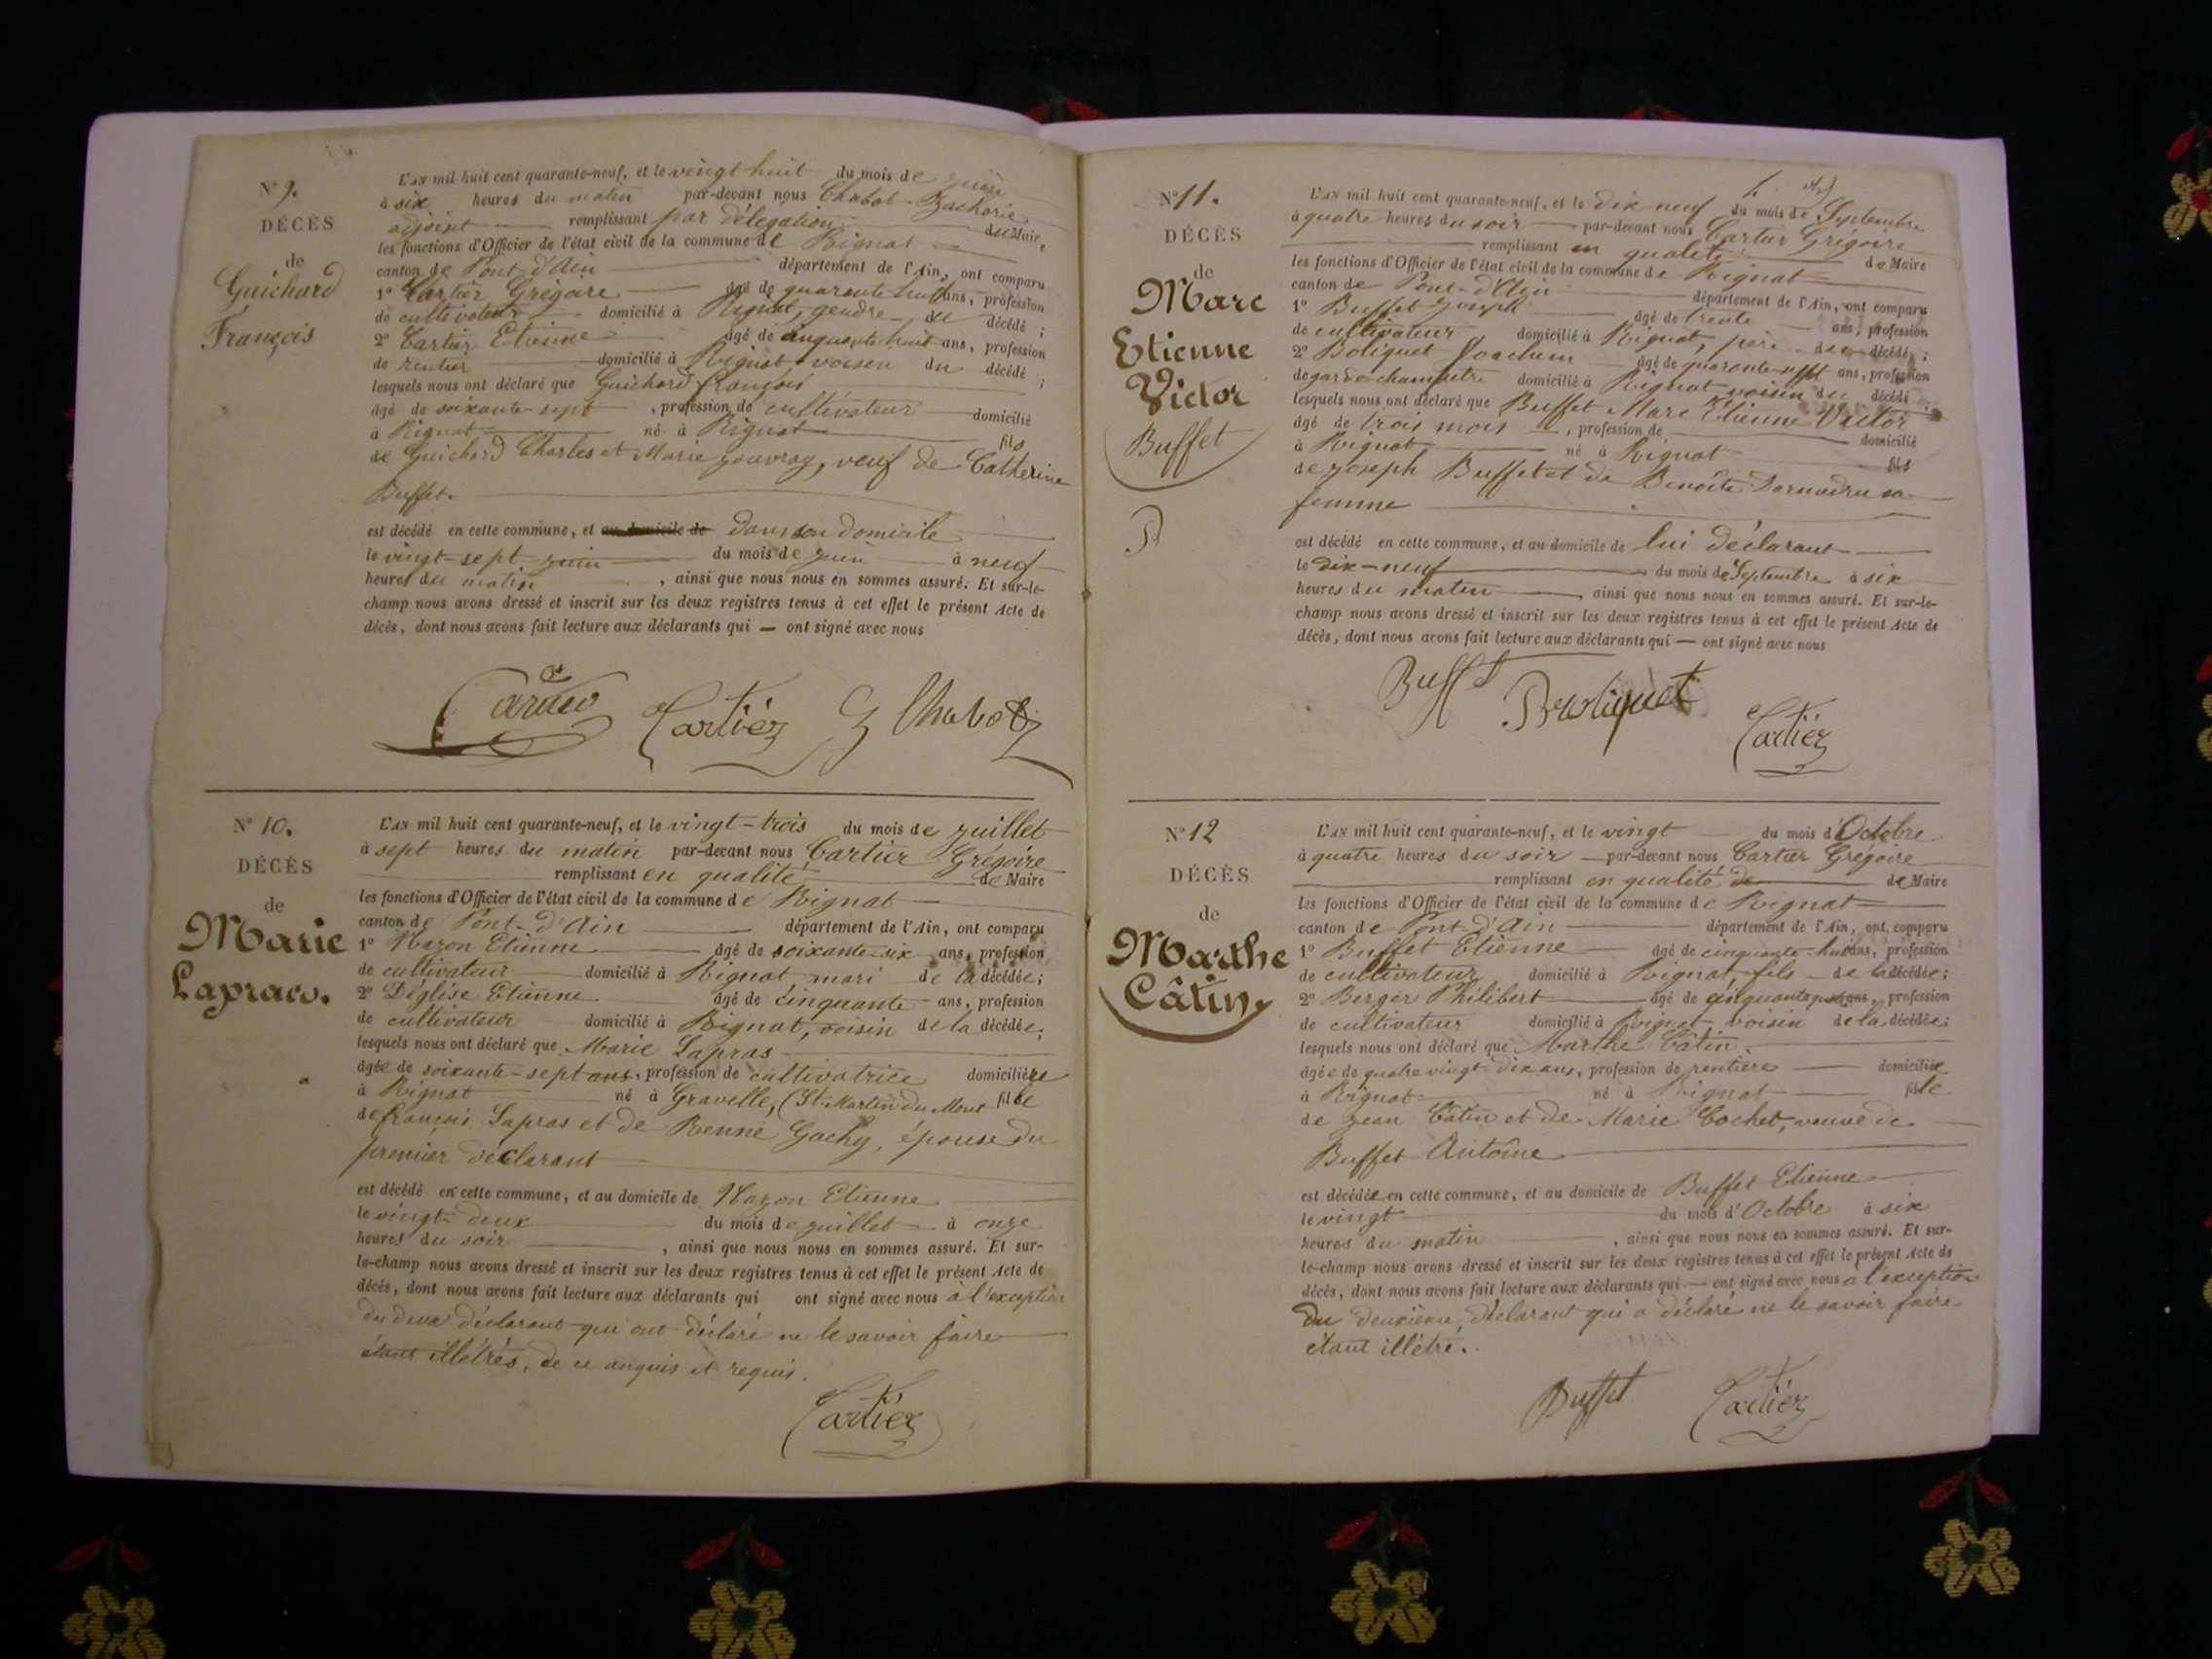 N° 9.
DÉCÈS
de
Guichard
François
L'AN mil huit cent quarante-neuf, et le vingt huit du mois de juin
à six heures du matin par-devant nous Chabot Zacharie
adjoint remplissant par délégation du Maire
les fonctions d'Officier de l'état civil de la commune de Rignat
canton de Pont-d'Ain département de l'Ain, ont comparu
1° Cartier Grégoire âgé de quarante huit ans, profession
de cultivateur domicilié à Rignat, gendre du décédé ;
2° Cartier Etienne âgé de cinquante huit ans, profession
de rentier domicilié à Rignat voisin du décédé ;
lesquels nous ont déclaré que Guichard françois
âgé de soixante-sept , profession de cultivateur domicilié
à Rignat né à Rignat fils
de Guichard Charles et Marie , veuf de Catherine
Buffet.
est décédé en cette commune, et au domicile de dans son domicile
le vingt-sept juin du mois de juin à neuf
heures du matin , ainsi que nous nous en sommes assuré. Et sur-le-
champ nous avons dressé et inscrit sur les deux registres tenus à cet effet le présent Acte de
décès, dont nous avons fait lecture aux déclarants qui — ont signé avec nous
Cartier Z Chabot
N° 10.
DÉCÈS
de
Marie
Lapras.
L'AN mil huit cent quarante-neuf, et le vingt-trois du mois de juillet
à sept heures du matin par-devant nous Cartier Grégoire
remplissant en qualité de Maire
les fonctions d'Officier de l'état civil de la commune de Rignat
canton de Pont-d'Ain département de l'Ain, ont comparu
1° Etienne âgé de soixante-six ans, profession
de cultivateur domicilié à Rignat mari de la décédée;
2° Déglise Etienne âgé de cinquante ans, profession
de cultivateur domicilié à Rignat, voisin de la décédée;
lesquels nous ont déclaré que Marie Lapras
âgée de soixante-sept ans, profession de cultivatrice domiciliée
à Rignat né à Gravelle, (St Martin du Mont fille
de françois Lapras et de Renne Gachy, épouse du
premier déclarant
est décédé en cette commune, et au domicile de Etienne
le vingt-deux du mois de juillet à onze
heures du soir , ainsi que nous nous en sommes assuré. Et sur-
le-champ nous avons dressé et inscrit sur les deux registres tenus à cet effet le présent Acte de
décès, dont nous avons fait lecture aux déclarants qui ont signé avec nous à l'exception
des deux déclarant qui ont déclaré ne le savoir faire
étant illétrés, de ce enquis et requis.
Cartier
N° 11.
DÉCÈS
de
Marc
Etienne
Victor
Buffet
L'AN mil huit cent quarante-neuf, et le dix neuf du mois de Septembre
à quatre heures du soir par-devant nous Cartier Grégoire
remplissant en qualité de Maire
les fonctions d'Officier de l'état civil de la commune de Rignat
canton de Pont-d'Ain département de l'Ain, ont comparu
1° Buffet Joseph âgé de trente ans, profession
de cultivateur domicilié à Rignat, père du décédé ;
2° Boliquet Joachim âgé de quarante-sept ans, profession
de garde champêtre domicilié à Rignat voisin du décédé ;
lesquels nous ont déclaré que Buffet Marc Etienne Victor
âgé de trois mois , profession de domicilié
à Rignat né à Rignat fils
de Joseph Buffet et de Benoîte sa
femme
est décédé en cette commune, et au domicile de lui déclarant
le dix-neuf du mois de Septembre à six
heures du matin ainsi que nous nous en sommes assuré. Et sur-le-
champ nous avons dressé et inscrit sur les deux registres tenus à cet effet le présent Acte de
décès, dont nous avons fait lecture aux déclarants qui — ont signé avec nous
Buffet Cartier
N° 12
DÉCÈS
de
Marthe
Câtin.
L'AN mil huit cent quarante-neuf, et le vingt du mois d'Octobre
à quatre heures du soir par-devant nous Cartier Grégoire
remplissant en qualité de de Maire
les fonctions d'Officier de l'état civil de la commune de Rignat
canton de Pont-d'Ain département de l'Ain, ont comparu
1° Buffet Etienne âgé de cinquante-huit ans, profession
de cultivateur domicilié à Rignat fils de la décédée;
2° Berger Philibert âgé de ans, profession
de cultivateur domicilié à Rignat voisin de la décédée;
lesquels nous ont déclaré que Marthe Câtin
âgée de quatre vingt-dix ans, profession de rentière domiciliée
à Rignat né à Rignat fille
de Jean Câtin et de Marie Cochet, veuve de
Buffet Antoine
est décédée en cette commune, et au domicile de Buffet Etienne
le vingt du mois d'Octobre à six
heures du matin , ainsi que nous nous en sommes assuré. Et sur-
le-champ nous avons dressé et inscrit sur les deux registres tenus à cet effet le présent Acte de
décès, dont nous avons fait lecture aux déclarants qui — ont signé avec nous à l'exception
du deuxième déclarant qui a déclaré ne le savoir faire
étant illétré.
Buffet Cartier